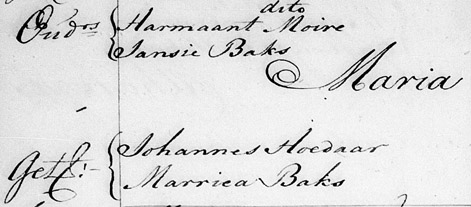 dito
Oud.rs { Harmaant Moire
Jansie Baks
Maria
Get:- { Johannes Hoedaar
Marriea Baks